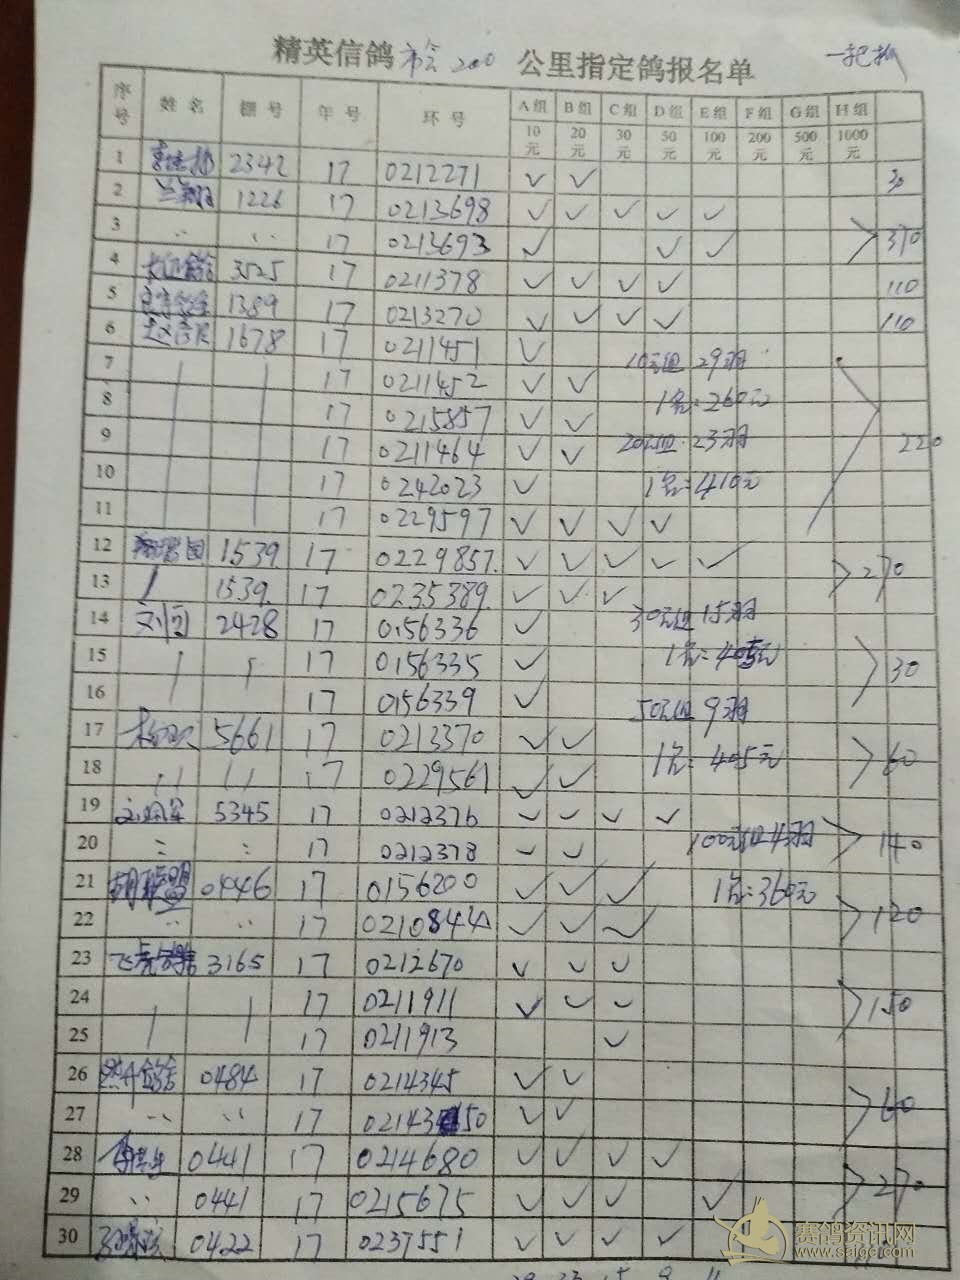 精英信鸽市会200公里指定鸽报名单 一把抓
序号 姓名 棚号 年号 环号 A组 B组 C组 D组 E组 F组 G组 H组
10元 20元 30元 50元 100元 200元 500元 1000元
1 2342 17 0212271 ✓ ✓ 30
2 1226 17 0213698 ✓ ✓ ✓ ✓ ✓
3 〃 〃 17 0213693 ✓ ✓ ✓ 370
4 3525 17 0211378 ✓ ✓ ✓ ✓ 110
5 1389 17 0213270 ✓ ✓ ✓ ✓ 110
6 1678 17 0211451 ✓ 10元组 29羽
7 17 0211452 ✓ ✓
8 17 0215857 ✓ ✓ 1名:260元
9 17 0211464 ✓ ✓ 20元组 23羽 220
10 17 0242023 ✓ 1名:410元
11 17 0229597 ✓ ✓ ✓ ✓
12 1539 17 0229857. ✓ ✓ ✓ ✓ ✓ 270
13 1539. 17 0235389. ✓ ✓ ✓
14 2428 17 0156336 ✓ 30元组 15羽
15 17 0156335 ✓ 1名:405元 30
16 17 0156339 ✓ 50元组 9羽
17 5661 17 0213370 ✓ ✓ 1名:405元 60
18 〃 〃 17 0229561 ✓ ✓
19 5345 17 0212376 ✓ ✓ ✓ ✓
20 〃 〃 17 0212378 ✓ ✓ 100元组 4羽 140
21 胡联盟 0446 17 0156200 ✓ ✓ ✓ 1名:360元
22 〃 〃 17 0210844 ✓ ✓ ✓ 120
23 3165 17 0212670 ✓ ✓ ✓
24 17 0211911 ✓ ✓ ✓ 150
25 17 0211913 ✓
26 0484 17 0214345 ✓ ✓
27 〃 〃 17 02143 50 ✓ ✓ 60
28 0441 17 0214680 ✓ ✓ ✓ ✓
29 〃 0441 17 0215675 ✓ ✓ ✓ ✓ 270
30 0422 17 0237551 ✓ ✓ ✓ ✓
赛鸽资讯网
www.saige.com